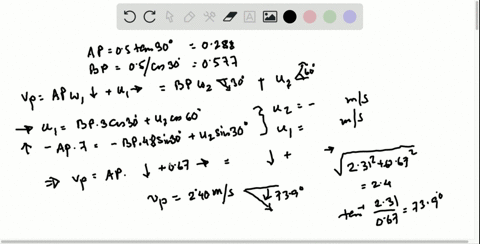 AP = 0.5 tan 30° = 0.288
BP = 0.5/cos 30° = 0.577
Vp = AP ω, ↓ + u, → = BP ω₂ 30° + u₂ 60°
→ u₁ = BP.3 cos 30 + u₂ cos 60° } u₂ = - m/s
↑ - AP.7 = - BP.4.8 sin 30° + u₂ sin 30° } u₁ = m/s
⇒ Vp = AP. ↓ + 0.67 → = ↓ + → √2.31² + 0.67²
= 2.4
Vp = 2.40 m/s 73.9°
tan⁻¹ 2.31/0.67 = 73.9°